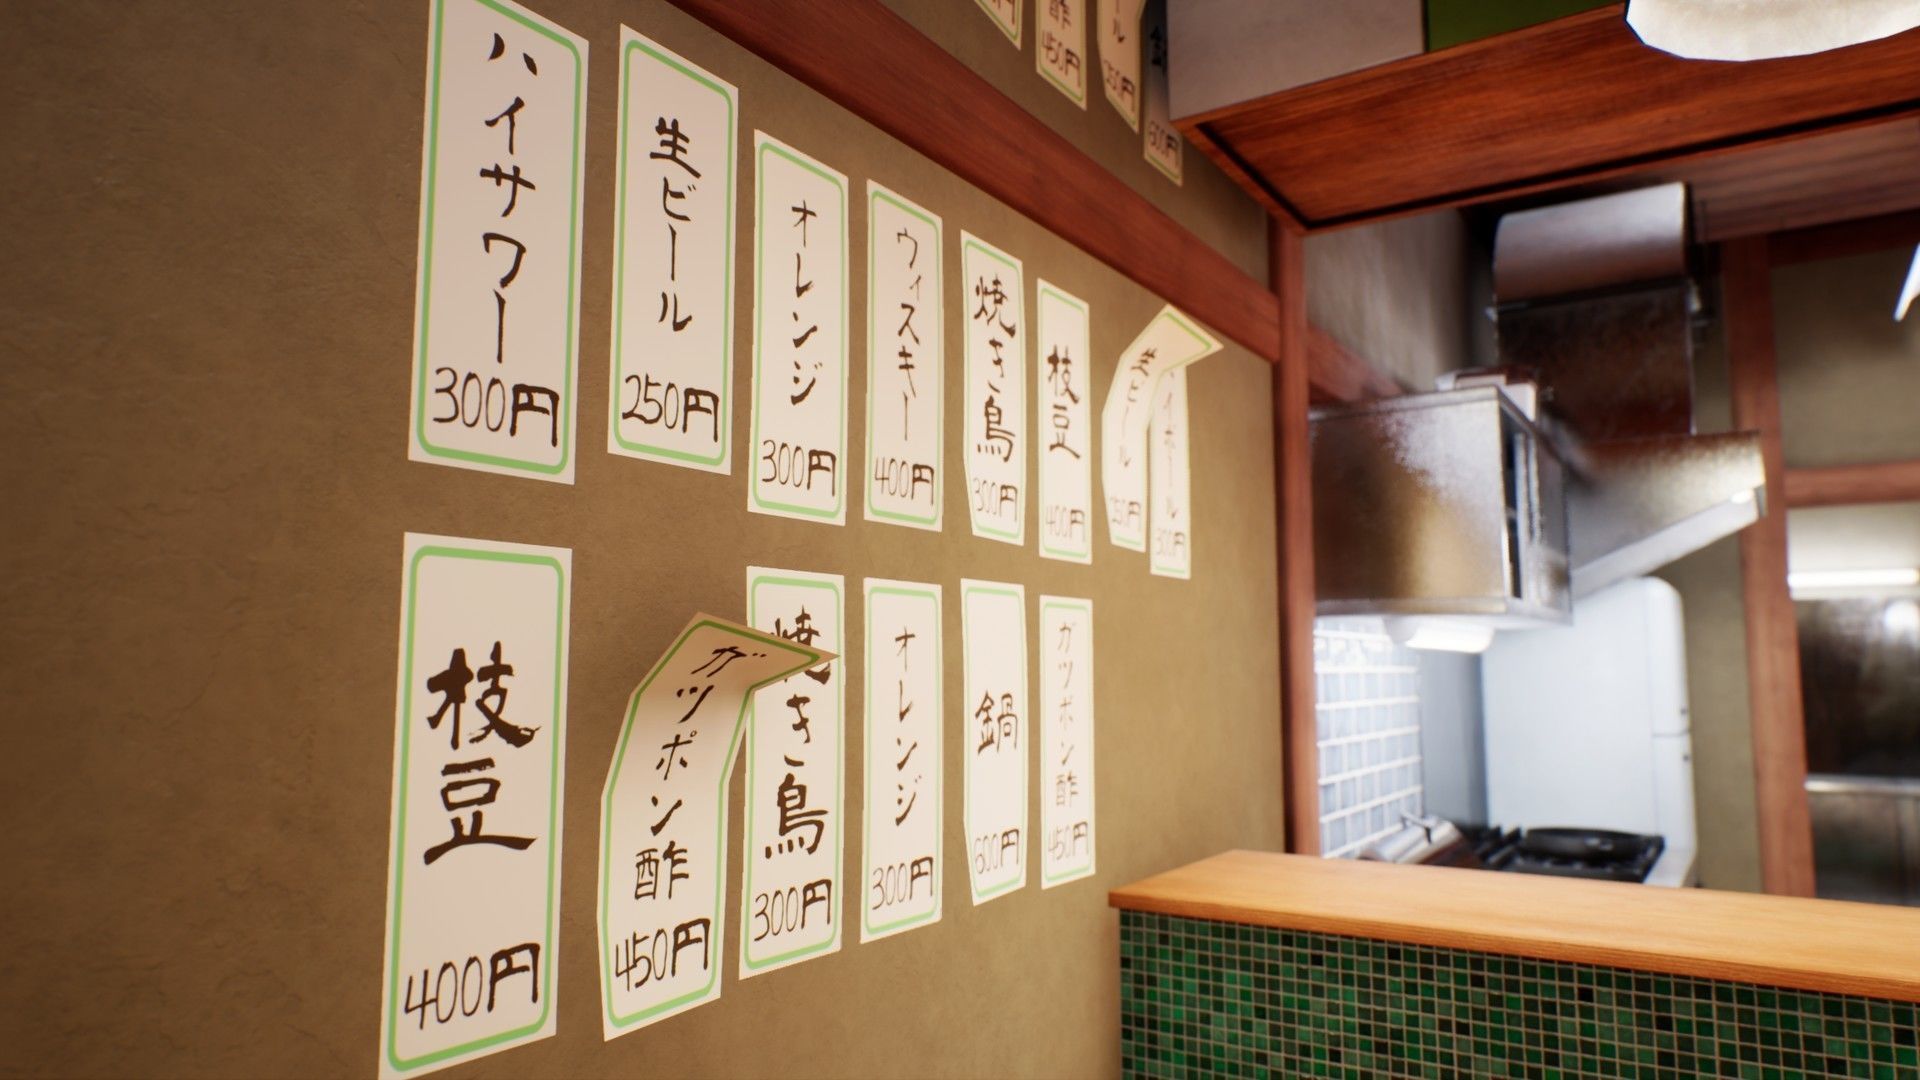 酢
450円
ール
250円
600円
ハイサワー
300円
生ビール
250円
オレンジ
300円
ウィスキー
400円
焼き鳥
300円
枝豆
400円
生ビール
250円
イボール
300円
枝豆
400円
ガツポン酢
450円
焼き鳥
300円
オレンジ
300円
鍋
600円
ガツポン酢
450円